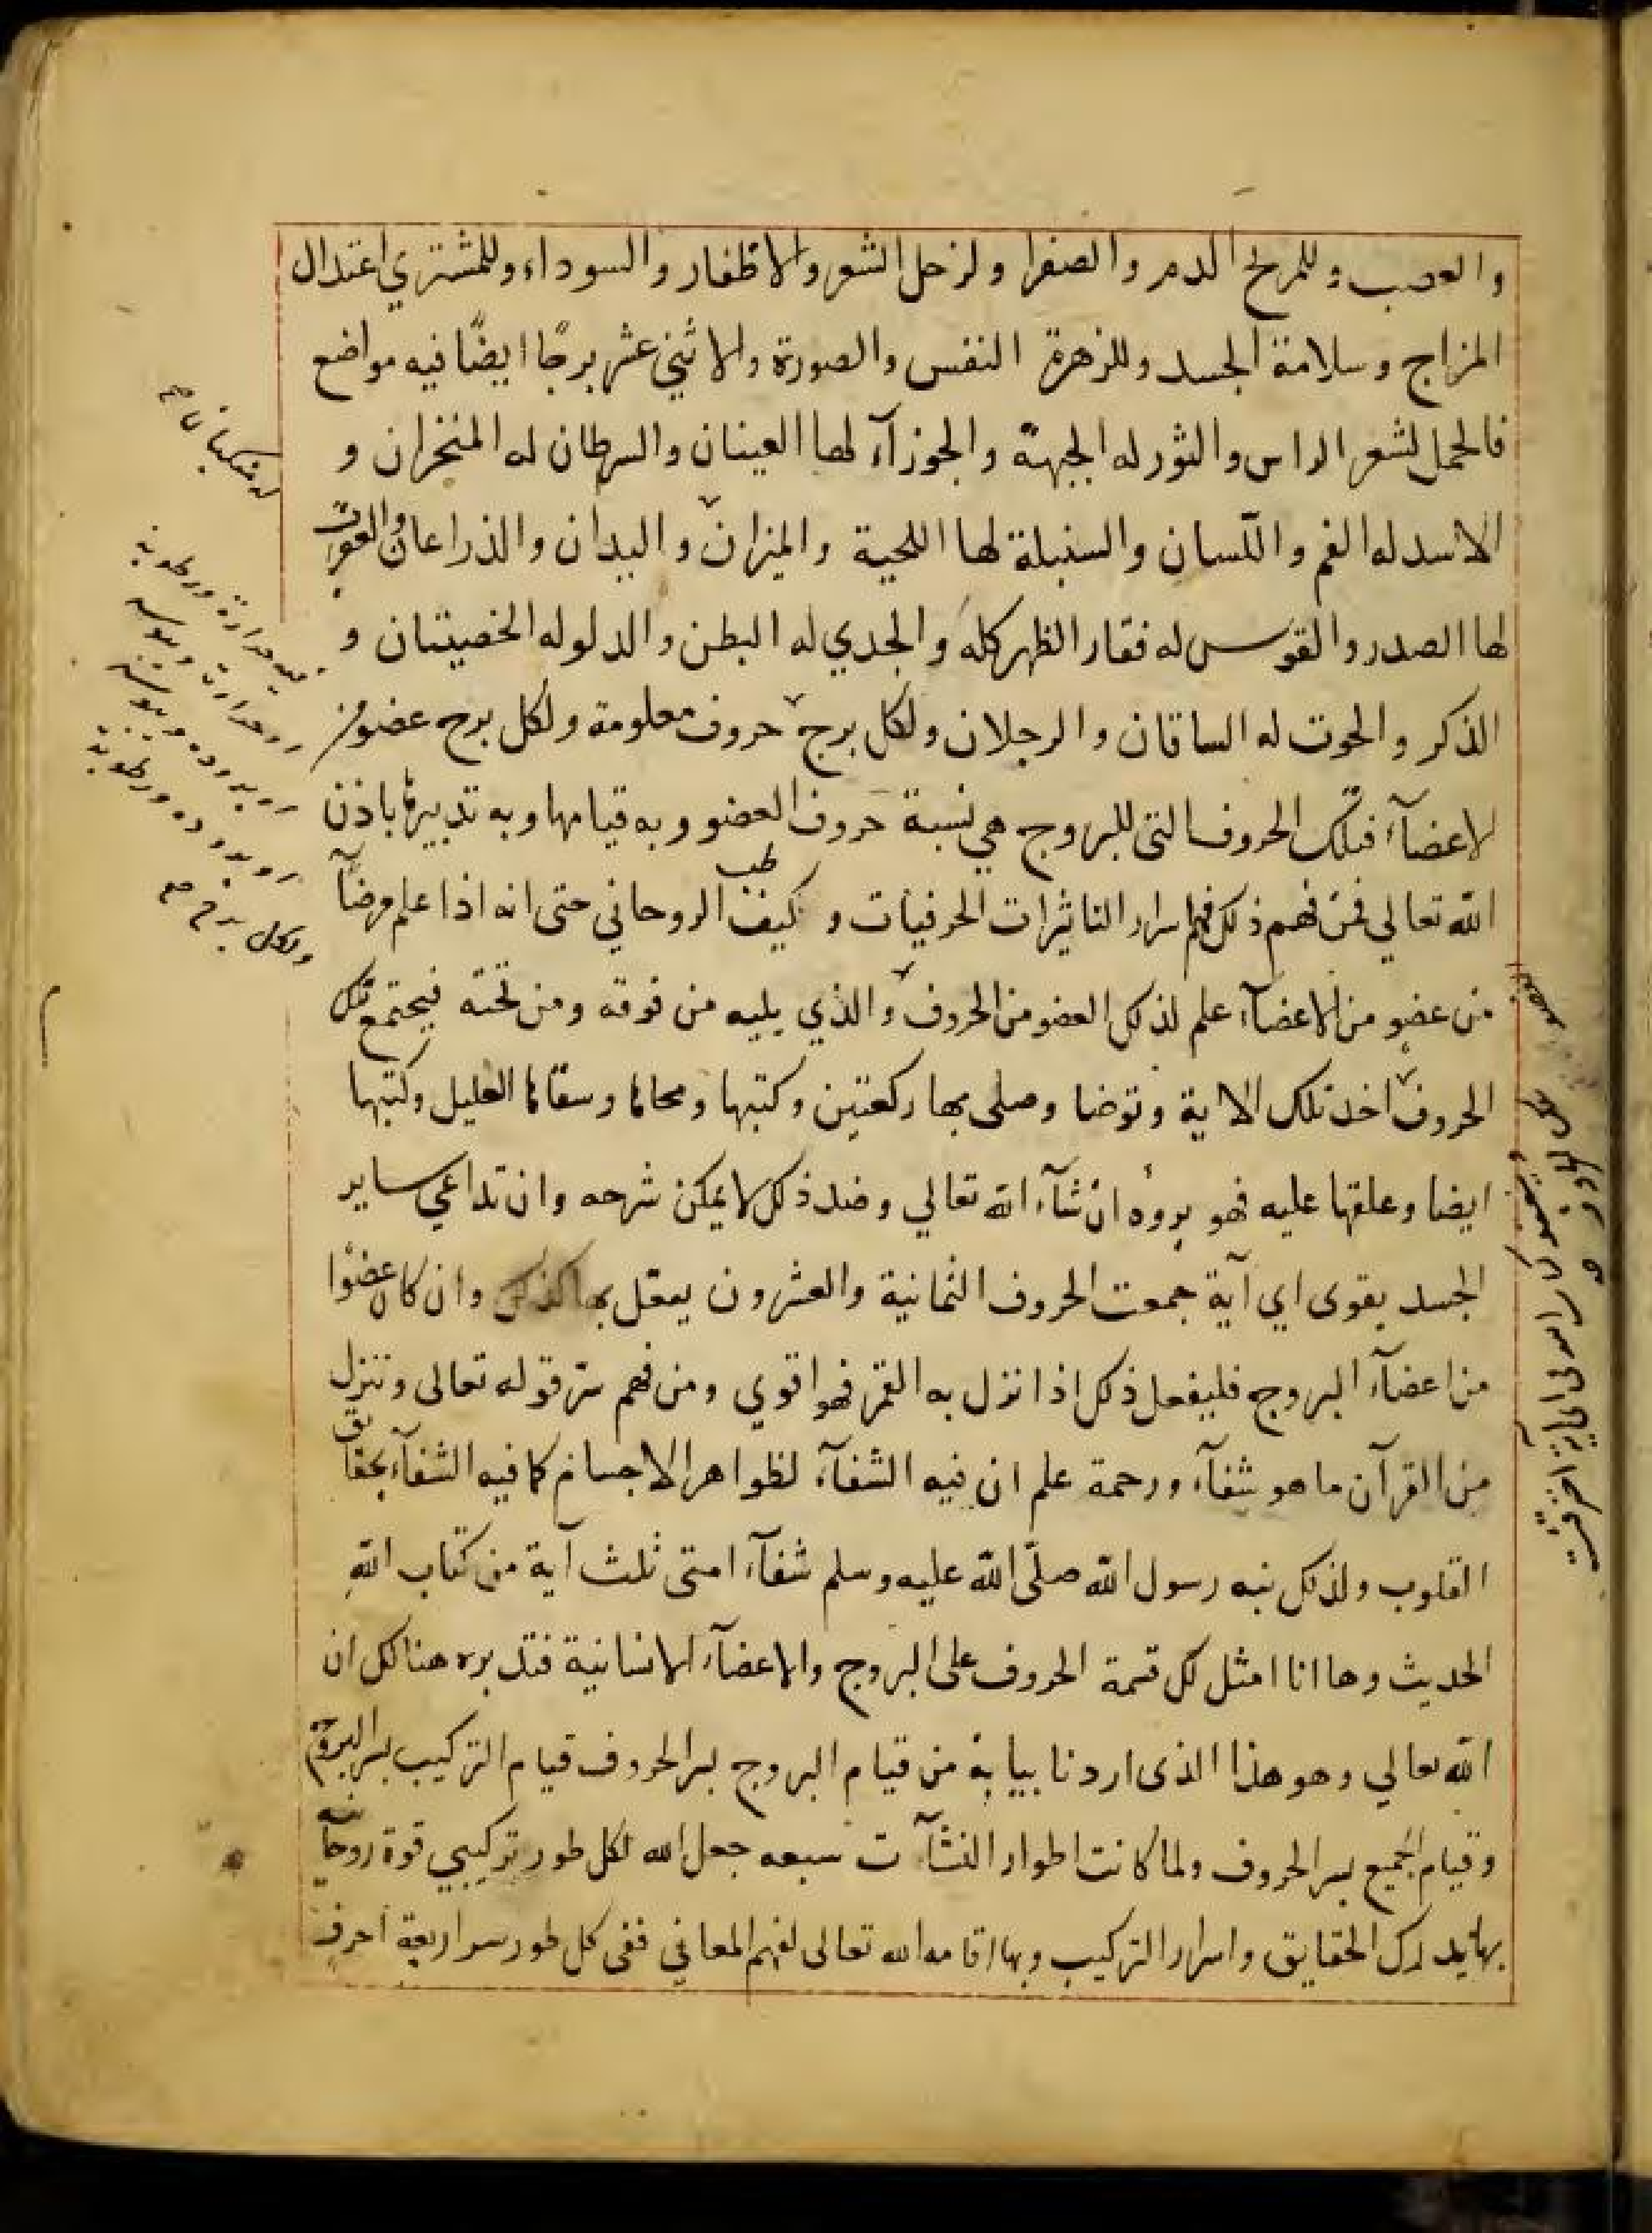 والعصب وللمريخ الدم والصفرا ولزحل الشعر والاظفار والسوداء وللمشتري اعتدال
المزاج وسلامة الجسد وللزهرة النفس والصورة والاثني عشر برجًا ايضًا فيه مواضع
فالحمل لشعر الراس والثور له الجبهة والجوزآء لها العينان والسرطان له المنخران و
الاسد له الفم واللسان والسنبلة لها اللحية والميزان و اليدان والذراعان والعقرب
لها الصدر والقوس له فقار الظهر كله والجدي له البطن والدلو له الخصيتان و
الذكر والحوت له الساقان والرجلان ولكل برج حروف معلومة ولكل برج عضو من
الاعضآء فتلك الحروف التى للبروج هي نسبة حروف العضو وبه قيامها وبه تدبيرها باذن
الله تعالي فمن فهم ذلك فهم اسرار التاثيرات الحرفيات و كيف طب الروحاني حتى انه اذا علم مرضآ
من عضو من الاعضآء علم لذلك العضو من الحروف والذي يليه من فوقه ومن تحته فيجتمع تلك
الحروف اخذ تلك الاية وتوضا وصلى بها ركعتين وكتبها ومحاها وسقاها العليل وكتبها
ايضا وعلقها عليه فهو بروه ان شآء الله تعالي وضد ذلك لا يمكن شرحه وان تداعي ساير
الجسد بقوى اي آية جمعت الحروف الثمانية والعشرون يعقل بها كذلك وان كان عضوا
من اعضآء البروج فليفعل ذلك اذا نزل به القمر فهو اقوي ومن فهم سر قوله تعالى وننزل
من القرآن ما هو شفآء ورحمة علم ان فيه الشفآء لظواهر الاجسام كما فيه الشفآء بحقايق
القلوب ولذلك نبه رسول الله صلّى الله عليه وسلم شفآء امتى ثلث آية من كتاب الله
الحديث وها انا امثل لك قسمة الحروف على البروج والاعضآء الانسانية فتدبره هنالك ان
الله تعالي وهو هذا الذى اردنا بيانه من قيام البروج بسر الحروف قيام التركيب بسر البروج
وقيام الجميع بسر الحروف ولما كانت اطوار النشآت سبعه جعل الله لكل طور تركيبي قوة روحانيه
بها يدرك الحقايق واسرار التركيب وبها اقامه الله تعالى لفهم المعاني ففى كل طور سر اربعة احرف
حرارة ورطوبة
حرارت ويبوسه
برودة ويبوسة
برودة ورطوبة
ولكل برج